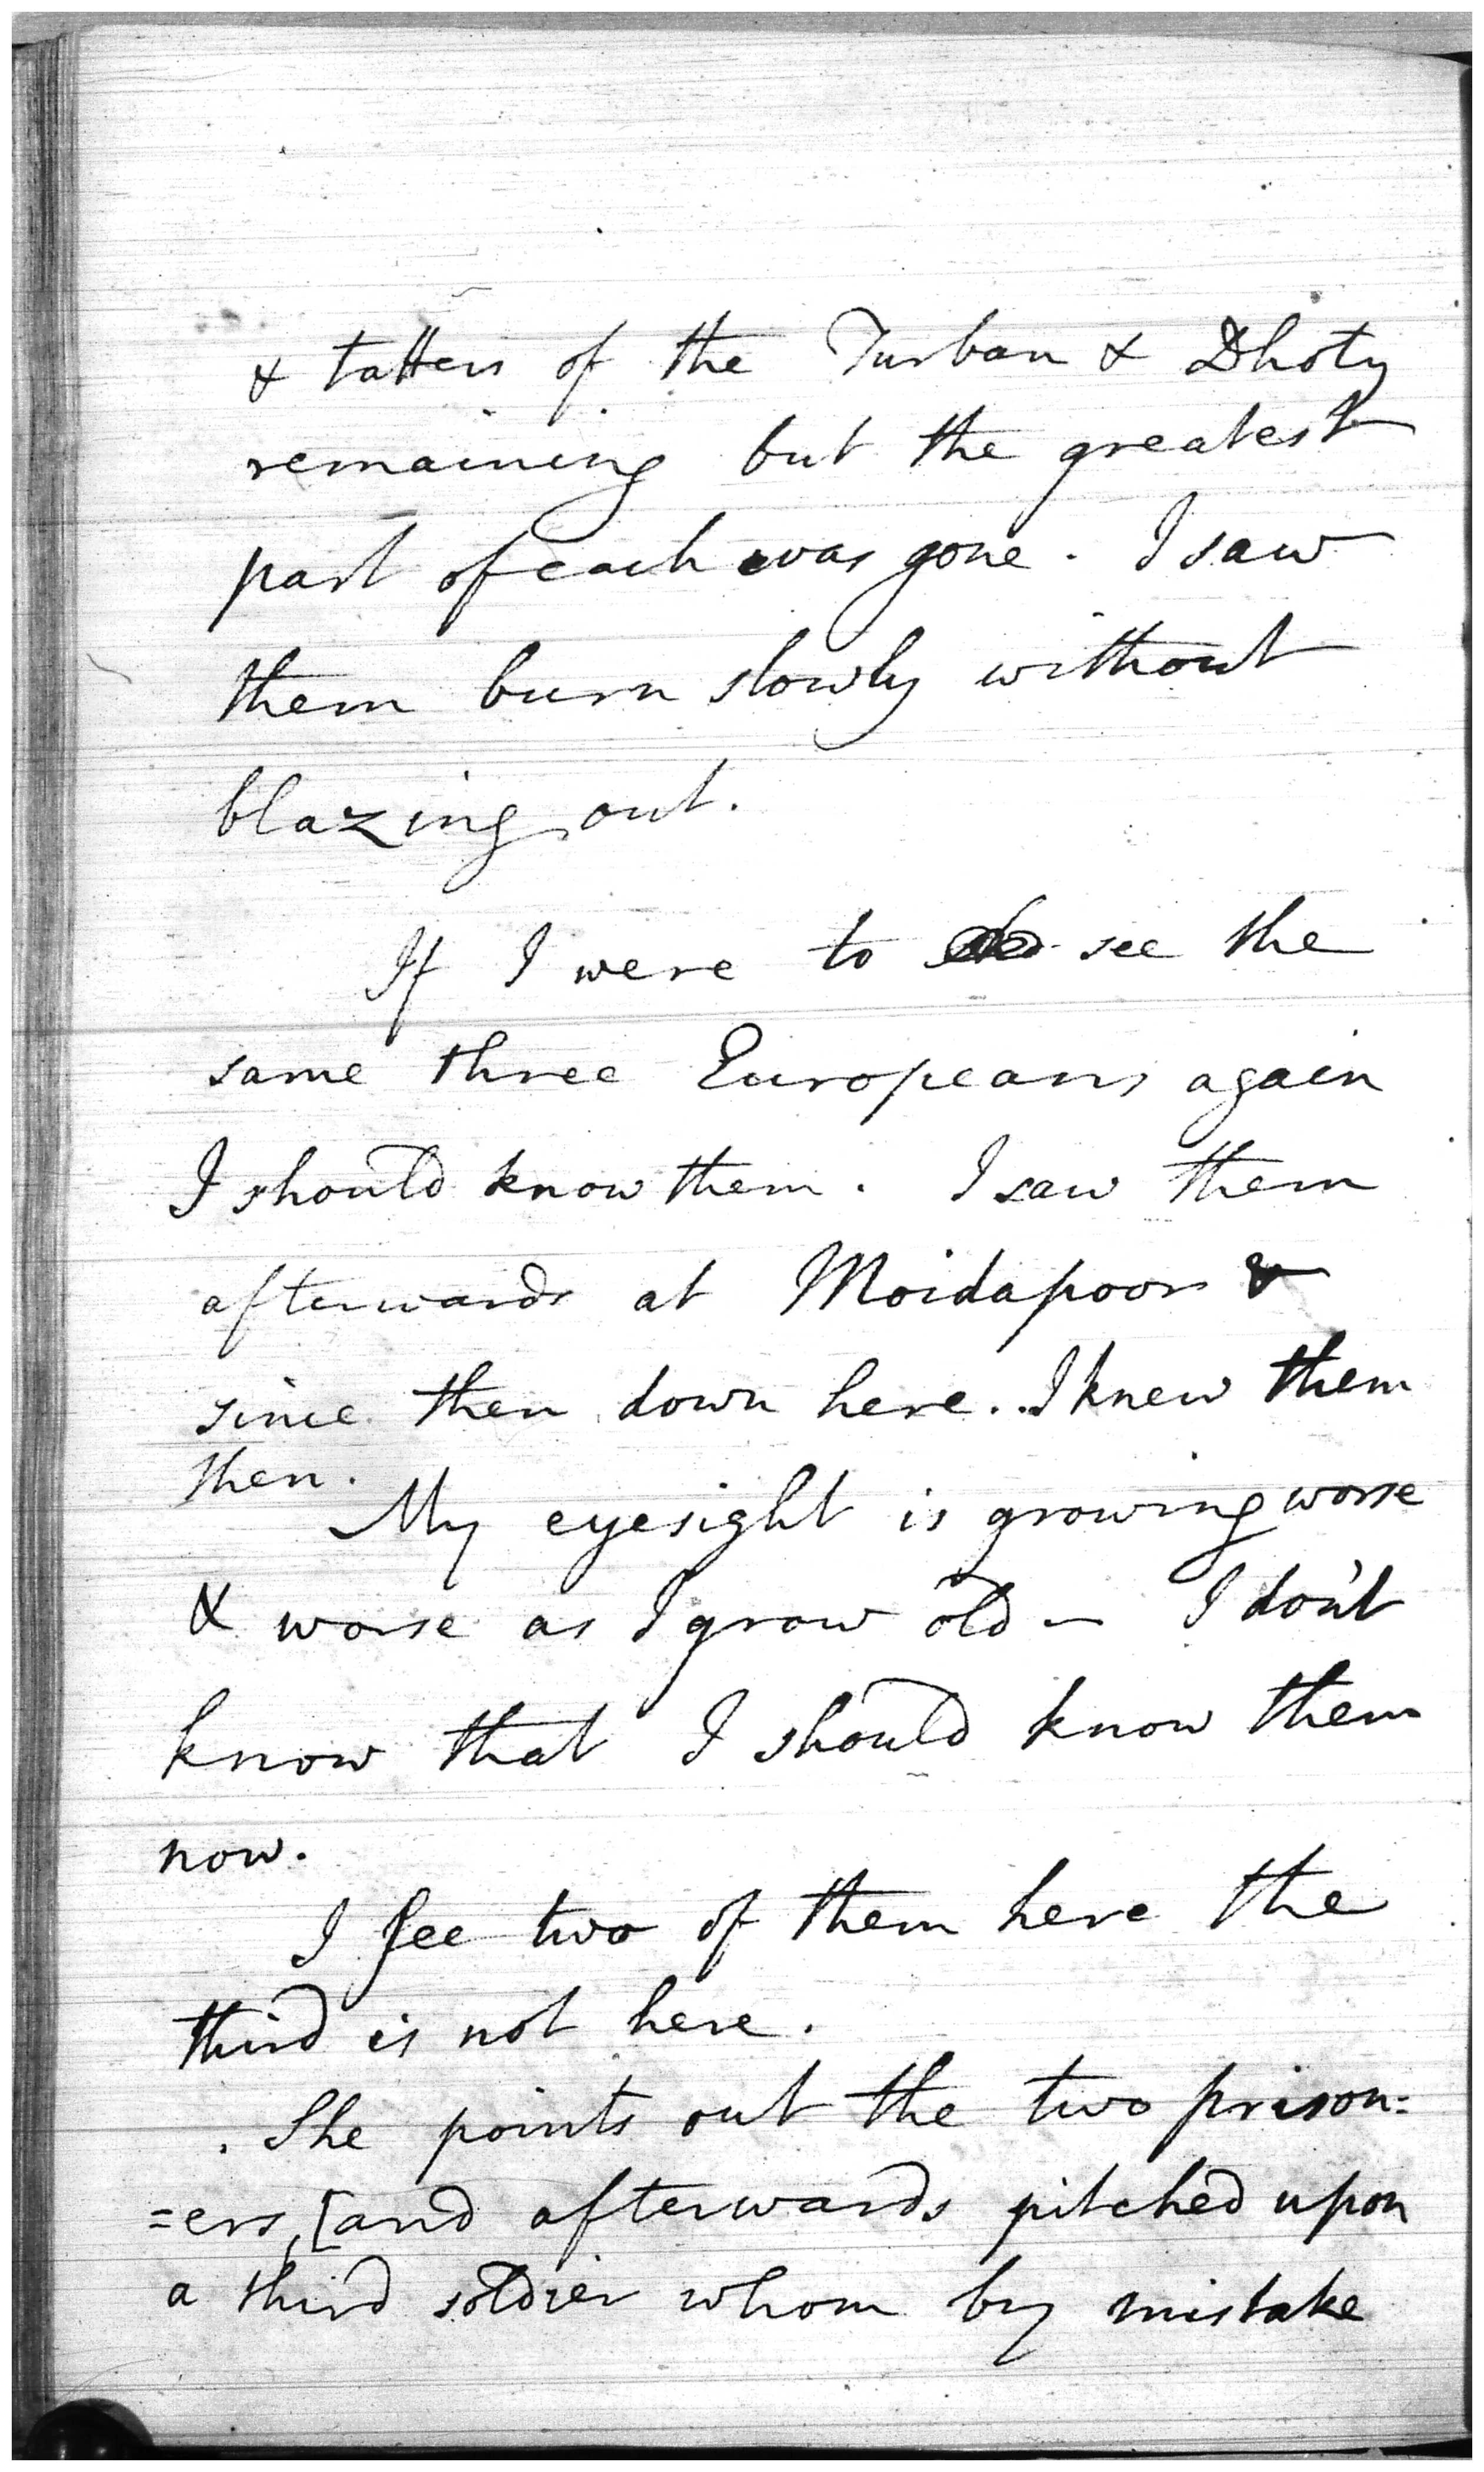 & tatters of the Turban & Dhoty
remaining but the greatest
part of each was gone. I saw
them burn slowly without
blazing out.
If I were to see the
same three Europeans again
I should know them. I saw them
afterwards at Moidapoor &
since then down here. I knew them
then.
My eyesight is growing worse
& worse as I grow old - I don't
know that I should know them
now.
I see two of them here the
third is not here.
She points out the two prison=
=ers, [and afterwards pitched upon
a third soldier whom by mistake